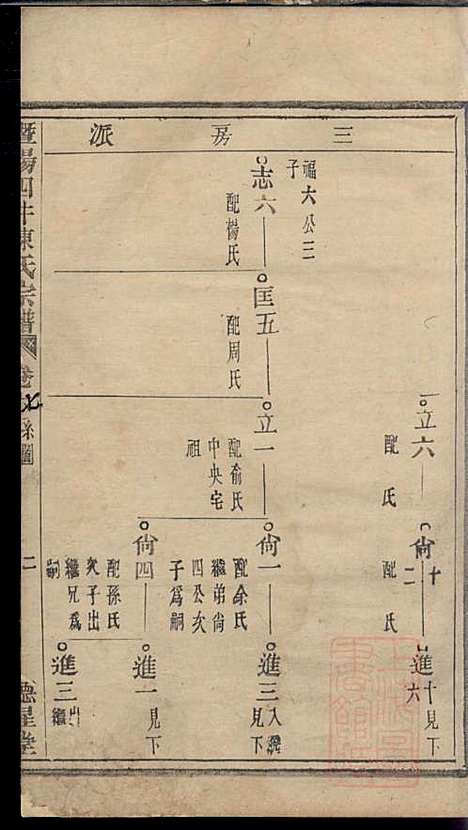 三房派
立六
配氏
尙十二
配氏
進十六
見下
福六公三子
志六
配楊氏
匡五
配周氏
立一
配俞氏
中央宅祖
尙一
配余氏
繼弟尙四公次子為嗣
進三
入繼
見下
尙四
配孫氏
次子出繼兄為嗣
進一
見下
進三
出繼
暨陽四十陳氏宗譜
卷
系圖
二
德星堂